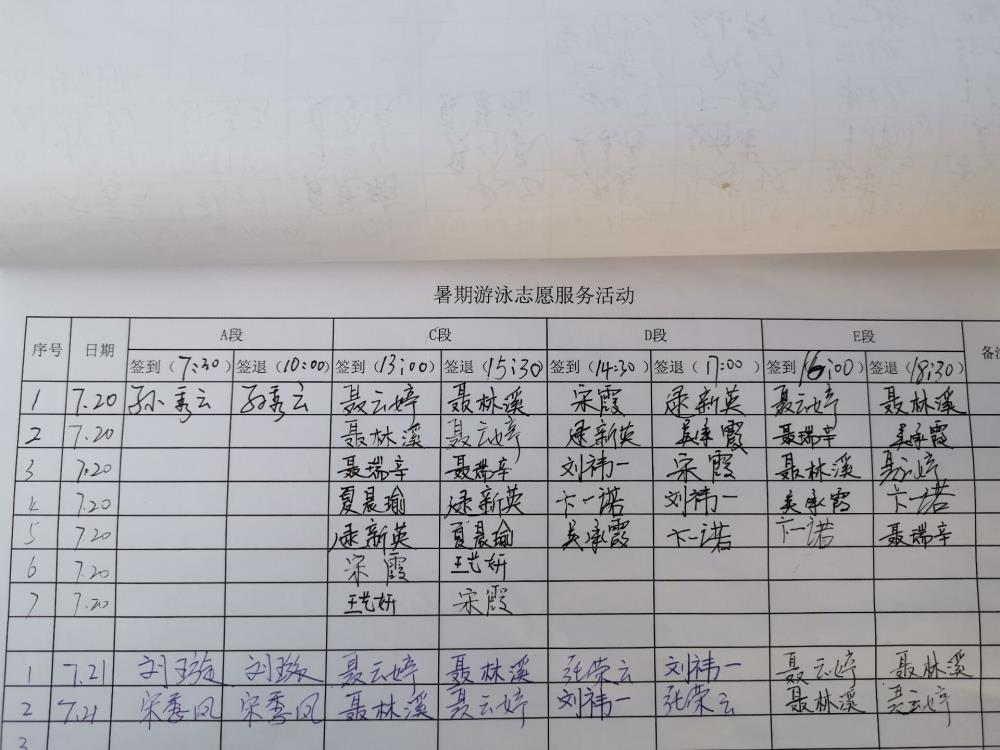 暑期游泳志愿服务活动
序号 日期 A段 C段 D段 E段 备注
签到(7:30) 签退(10:00) 签到(13:00) 签退(15:30) 签到(14:30) 签退(17:00) 签到(16:00) 签退(18:30)
1 7.20 孙秀云 孙秀云 聂云婷 聂林溪 宋霞 逯新英 聂云婷 聂林溪
2 7.20 聂林溪 聂云婷 逯新英 吴承霞 聂瑞辛 吴承霞
3 7.20 聂瑞辛 聂瑞辛 刘祎一 宋霞 聂林溪 聂云婷
4 7.20 夏晨瑜 逯新英 卞一诺 刘祎一 吴承霞 卞一诺
5 7.20 逯新英 夏晨瑜 吴承霞 卞一诺 卞一诺 聂瑞辛
6 7.20 宋霞 王艺妍
7 7.20 王艺妍 宋霞
1 7.21 聂云婷 聂林溪 张荣云 刘祎一 聂云婷 聂林溪
2 7.21 宋季凤 宋季凤 聂林溪 聂云婷 刘祎一 张荣云 聂林溪 聂云婷
3